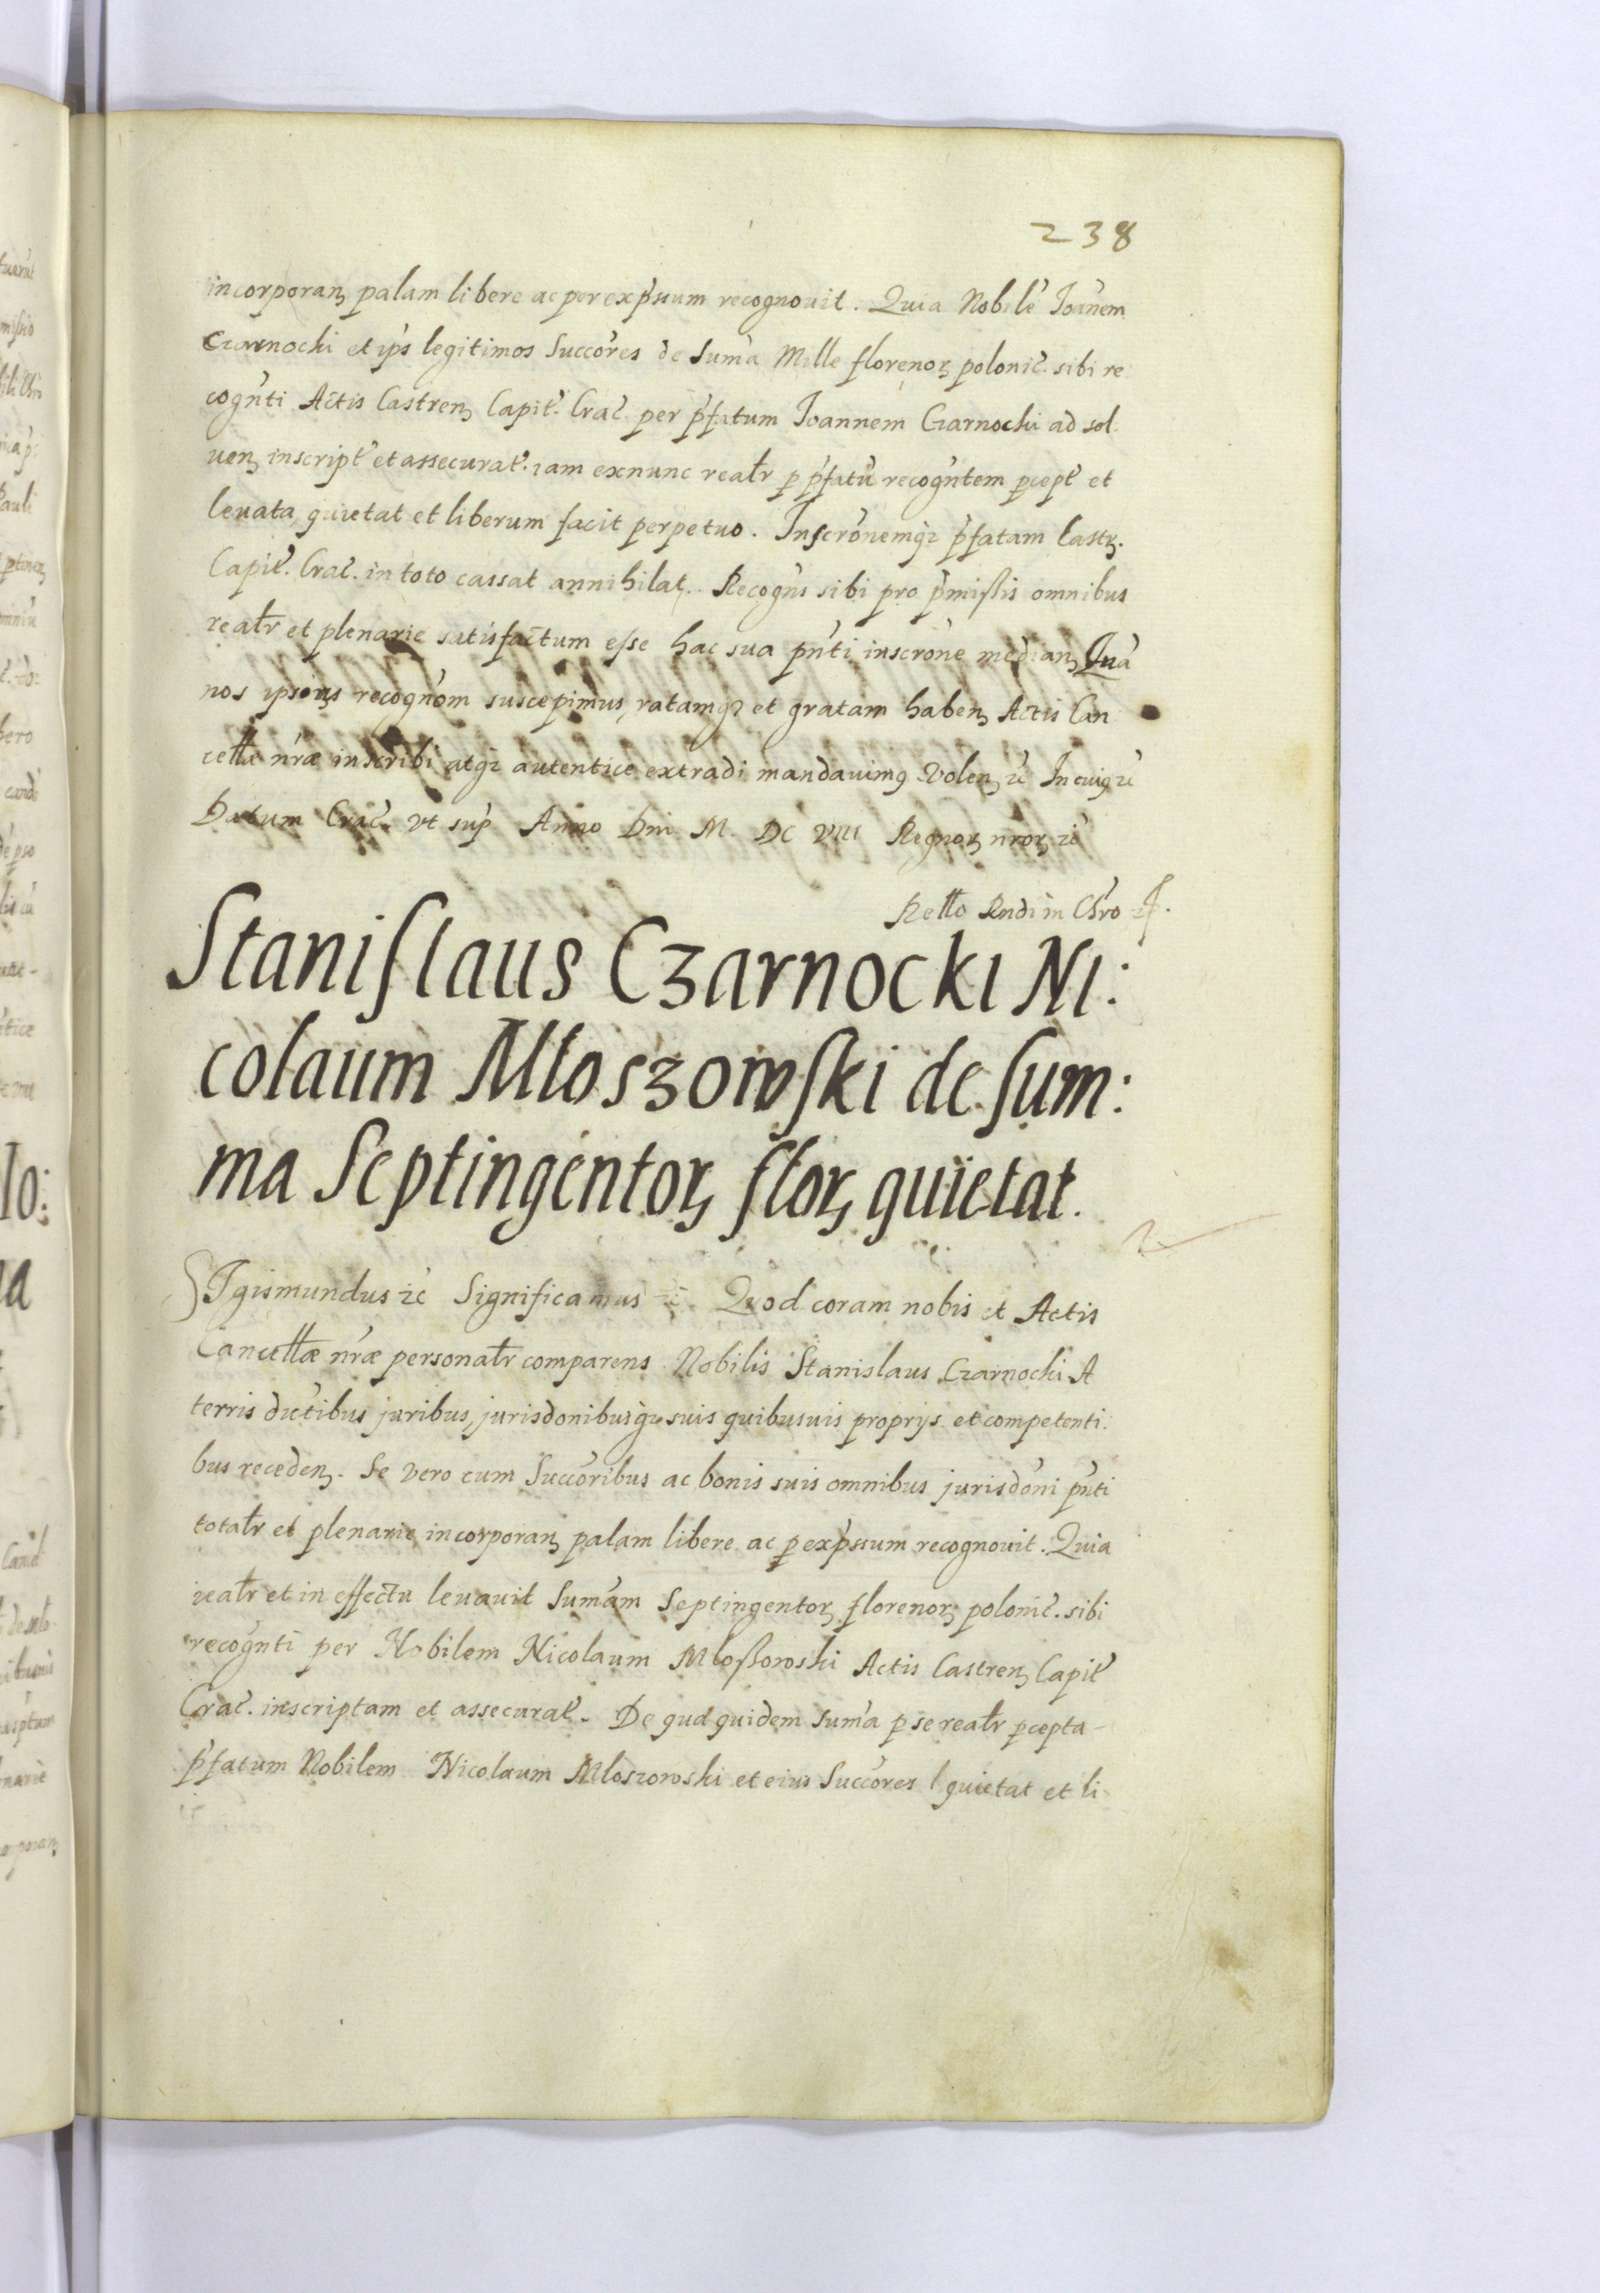 238
incorporanꝫ palam libere ac per exp̃ssum recognouit. Quia Nobile᷈ Ioan̄em
Czarnocki et ip̃s legitimos Succo᷈res de Sum̄a Mille florenorꝫ polonic᷈. sibi re
cogn᷈ti Actis Castrenꝫ Capit᷈. Crac᷈ per p᷈fatum Joannem Czarnocki ad sol
uenꝫ inscript᷈ et assecurat᷈. iam exnunc realr̄ p p᷈fatū recogn᷈tem pcept᷈ et
leuata, quietat et liberum facit perpetuo. Inscro᷈nemqꝫ p᷈fatam Castrꝫ.
Capit᷈. Crac᷈. in toto cassat annihilat. Recogn᷈s sibi pro p᷈missis omnibus
realr̄ et plenarie satisfactum esse hac sua pn᷈ti inscro᷈ne medianꝫ Qua᷈
nos ipsius recogno᷈m suscepimus, ratamqꝫ et gratam habenꝫ Actis Can
cellæ nr᷈æ inscribi atqꝫ autentice extradi mandauimꝰ Volenꝫ ꝛc᷈ In cuiꝰ ꝛc᷈
Datum Crac᷈. vt sup᷈ Anno Dni M. DC VIII Regnorꝫ nrorꝫ ꝛc᷈
Rello Rndi in Chr᷈o ꝛc.
Staniſlaus Czarnocki Ni:
colaum Młoszowſki de ſum:
ma Septingentorꝫ florꝫ quietat.
SIgismundus ꝛc᷈ Significamus ꝛc᷈. Quod coram nobis et Actis
Cancellæ nr᷈æ personalr̄ comparens Nobilis Stanislaus Czarnocki A
terris dictibus juribus, jurisdonibusqꝫ suis quibusuis proprijs et competenti:
bus recedenꝫ. Se vero cum Succo᷈ribus ac bonis suis omnibus jurisdo᷈ni pn᷈ti
totalr̄ et plenarie incorporanꝫ palam libere ac p exp᷈ssum recognouit. Quia
realr̄ et in effectu leuauit Sum̄am Septingentorꝫ florenorꝫ polonic᷈. sibi
recogn᷈ti per Nobilem Nicolaum Mloßowski Actis Castrenꝫ Capit᷈
Crac᷈. inscriptam et assecurat᷈. De qua quidem sum̄a p se realr̄ pcepta
p᷈fatum Nobilem Nicolaum Mloszowski et eius Succo᷈res l quietat et li